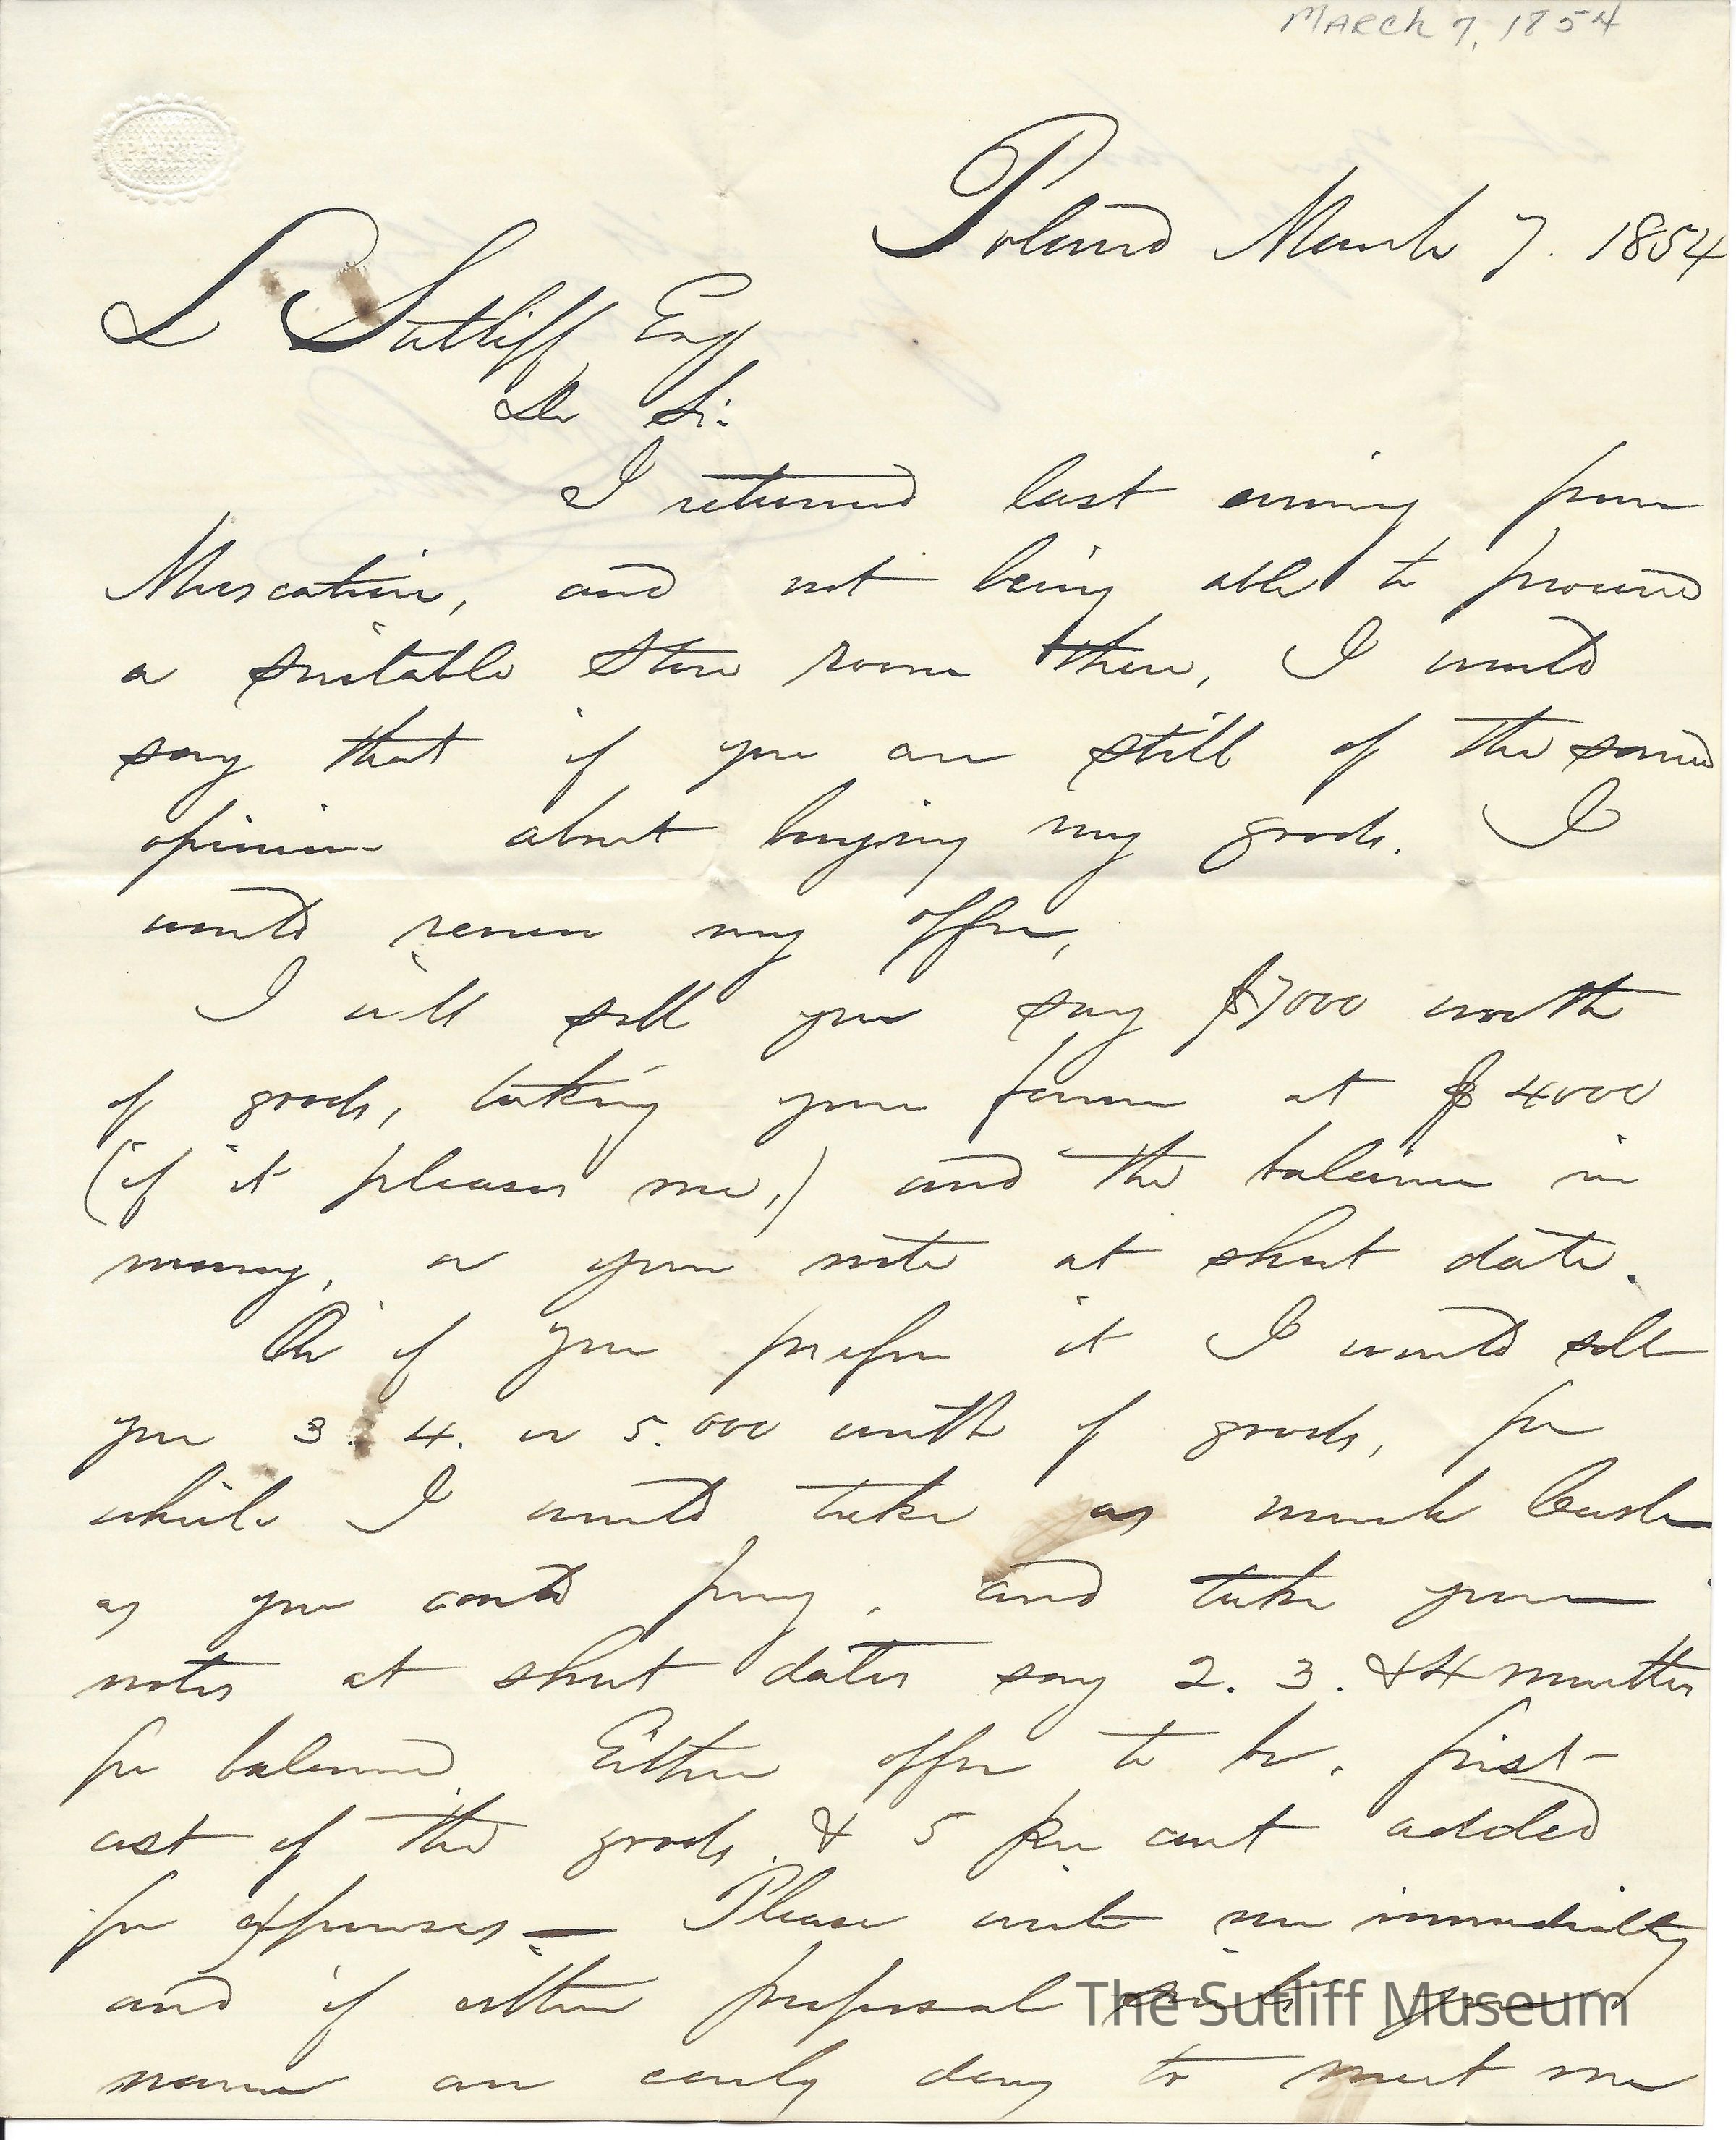 MARCH 7, 1854
Poland March 7. 1854
L Sutliff Esq
Dr Sir
I returned last evening from
Muscatine, and not being able to procure
a suitable store room there, I would
say that if you are still of the same
opinion about buying my goods. I
would renew my offer,
I will sell you say $7000 worth
of goods, taking your farm at $4000
(if it pleases me,) and the balance in
money, or your note at short date.
Or if you prefer it I would sell
you 3. 4. or 5.000 worth of goods, for
which I would take as much Cash
as you could pay, and take your
notes at short dates say 2. 3. & 4 months
for balance. Either offer to be. first
cost of the goods. & 5 per cent added
for expenses — Please write me immediately
and if either proposal suits you
name an early day to meet me
The Sutliff Museum